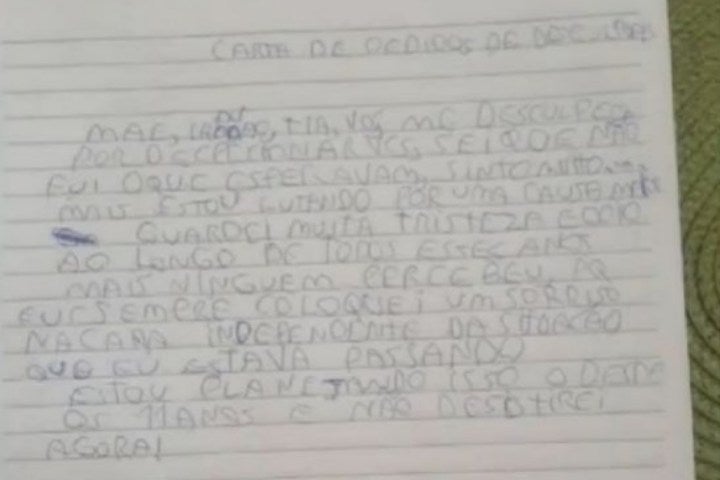 CARTA DE PEDIDOS DE DESCULPAS
MAE, TIA, VOS, ME DESCULPEM
POR DECEPCIONAR VCS, SEI QUE NÃO
FUI OQUE ESPERAVAM, SINTO MUITO
MAIS ESTOU LUTANDO POR UMA CAUSA
GUARDEI MUITA TRISTEZA E ODIO
AO LONGO DE TODOS ESSES ANOS
MAIS NINGUEM PERCEBEU, PQ
EU SEMPRE COLOQUEI UM SORRISO
NA CARA INDEPENDENTE DA SITUAÇÃO
QUE EU ESTAVA PASSANDO
ESTOU PLANEJANDO ISSO DESDE
OS 11 ANOS E NÃO DESISTIREI
AGORA!